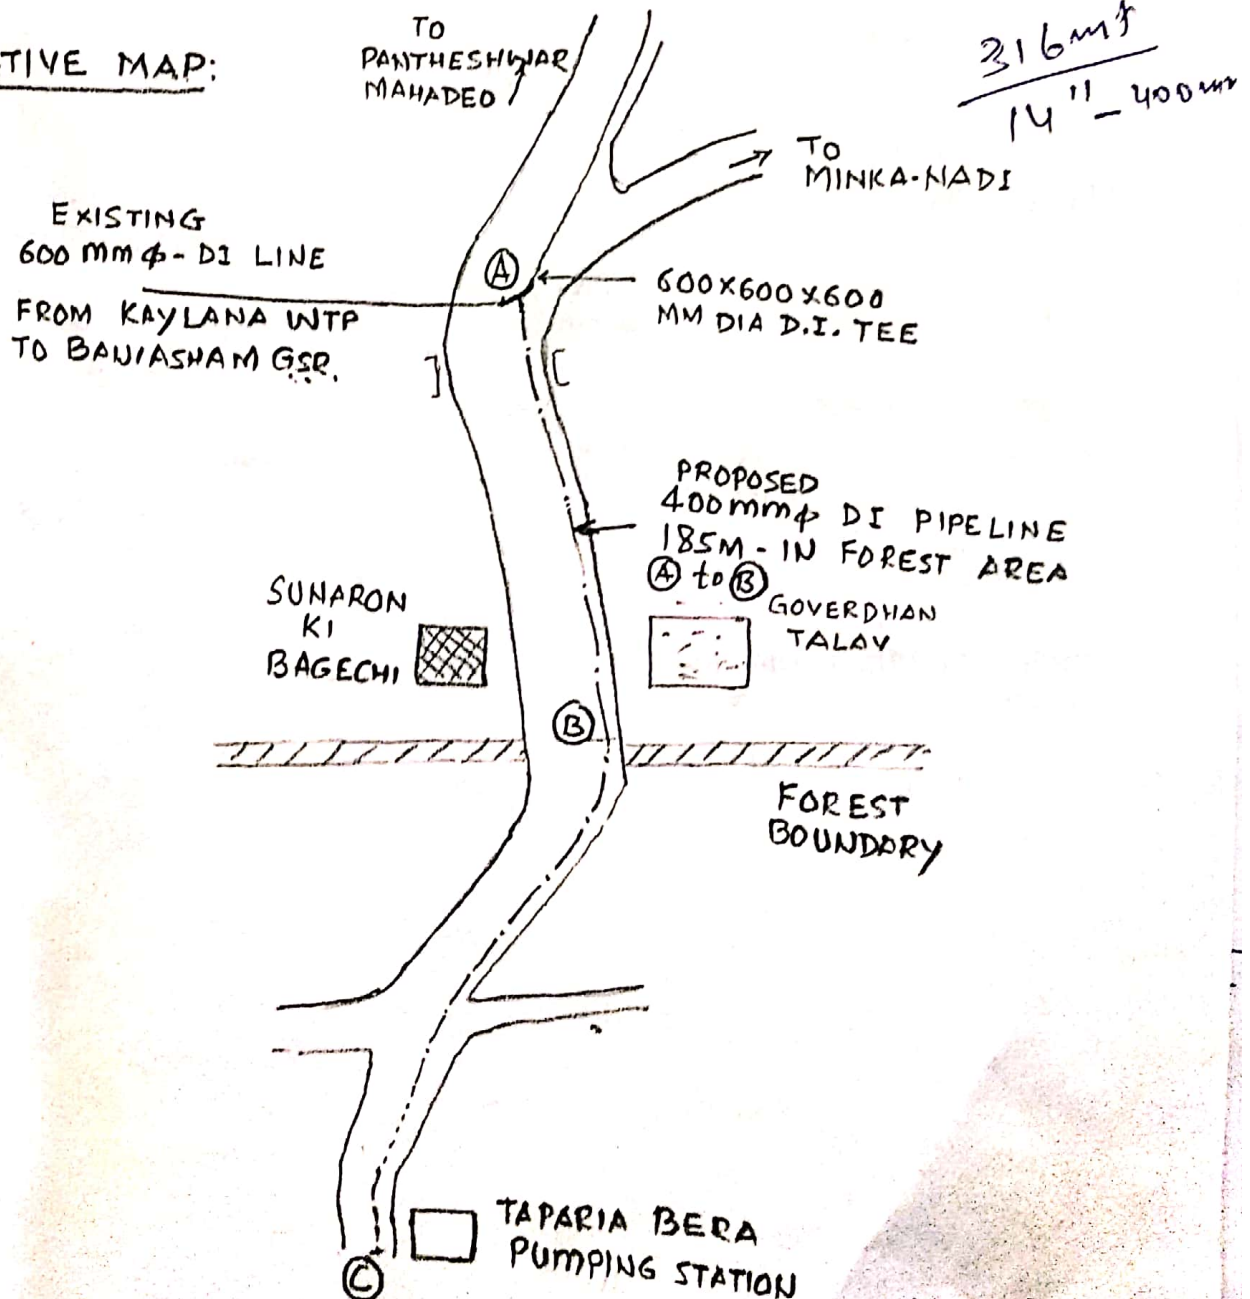 TIVE MAP:
TO
PANTHESHWAR
MAHADEO
316 mt
14" - 400 mm
TO
MINKA-NADI
EXISTING
600 mm ϕ - DI LINE
FROM KAYLANA WTP
TO BANIASHAM GSR.
A
600X600X600
MM DIA D.I. TEE
PROPOSED
400mmϕ DI PIPELINE
185M - IN FOREST AREA
A to B
GOVERDHAN
TALAV
SUNARON
KI
BAGECHI
B
FOREST
BOUNDARY
TAPARIA BERA
PUMPING STATION
C